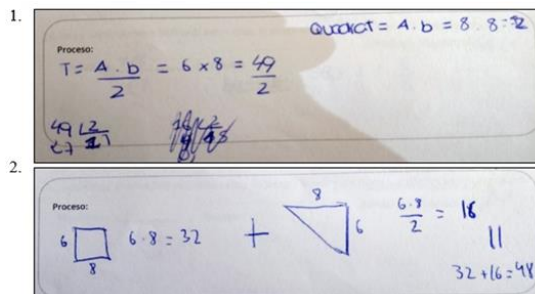 1.
Quadrat = A . b = 8 . 8 =
Proceso:
T = A . b / 2 = 6 x 8 = 49 / 2
49 2
2.
Proceso:
8
6 6 . 8 = 32 + 6 6 . 8 / 2 = 16
8
32 + 16 = 48